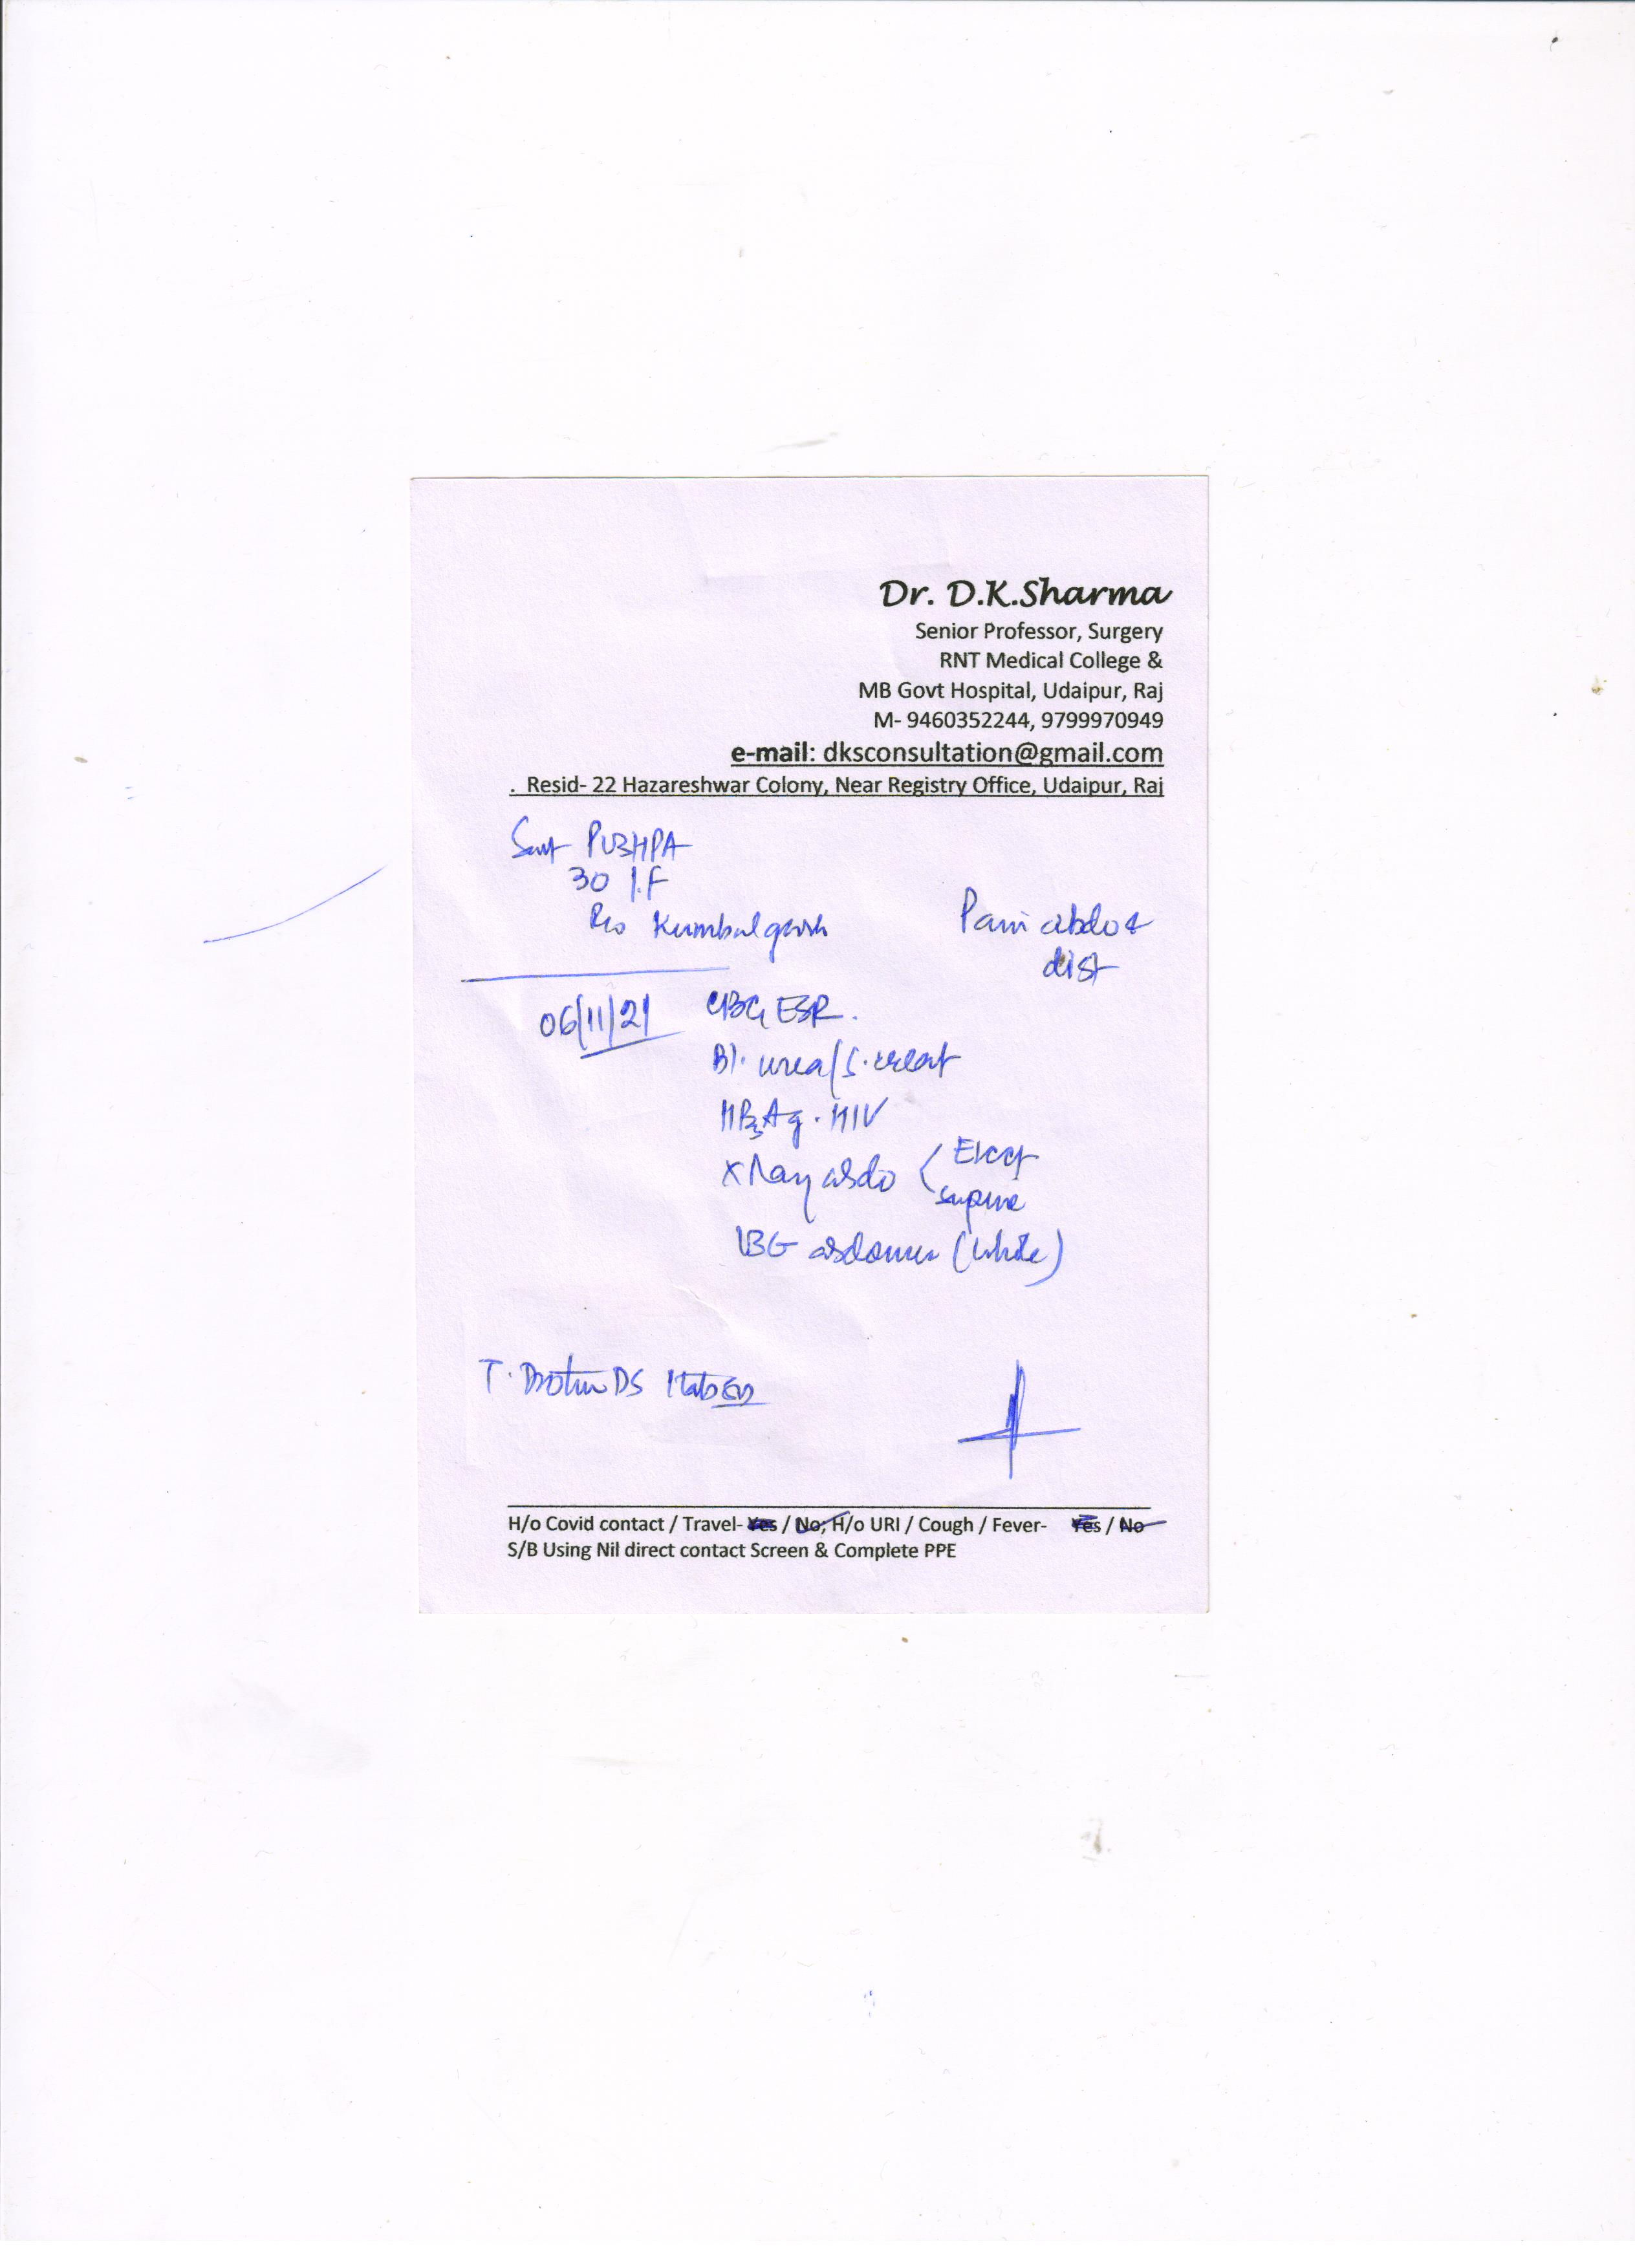 Dr. D.K.Sharma
Senior Professor, Surgery
RNT Medical College &
MB Govt Hospital, Udaipur, Raj
M- 9460352244, 9799970949
e-mail: dksconsultation@gmail.com
. Resid- 22 Hazareshwar Colony, Near Registry Office, Udaipur, Raj
Smt PUSHPA
30 / F
R/o Kumbalgarh
Pain abdo &
dist
06/11/21 CBC, ESR.
Bl. urea/S. creat
HBsAg. HIV
X Ray abdo Erect
supine
USG abdomen (whole)
T. DS 1 tab
H/o Covid contact / Travel- Yes / No; H/o URI / Cough / Fever- Yes / No
S/B Using Nil direct contact Screen & Complete PPE